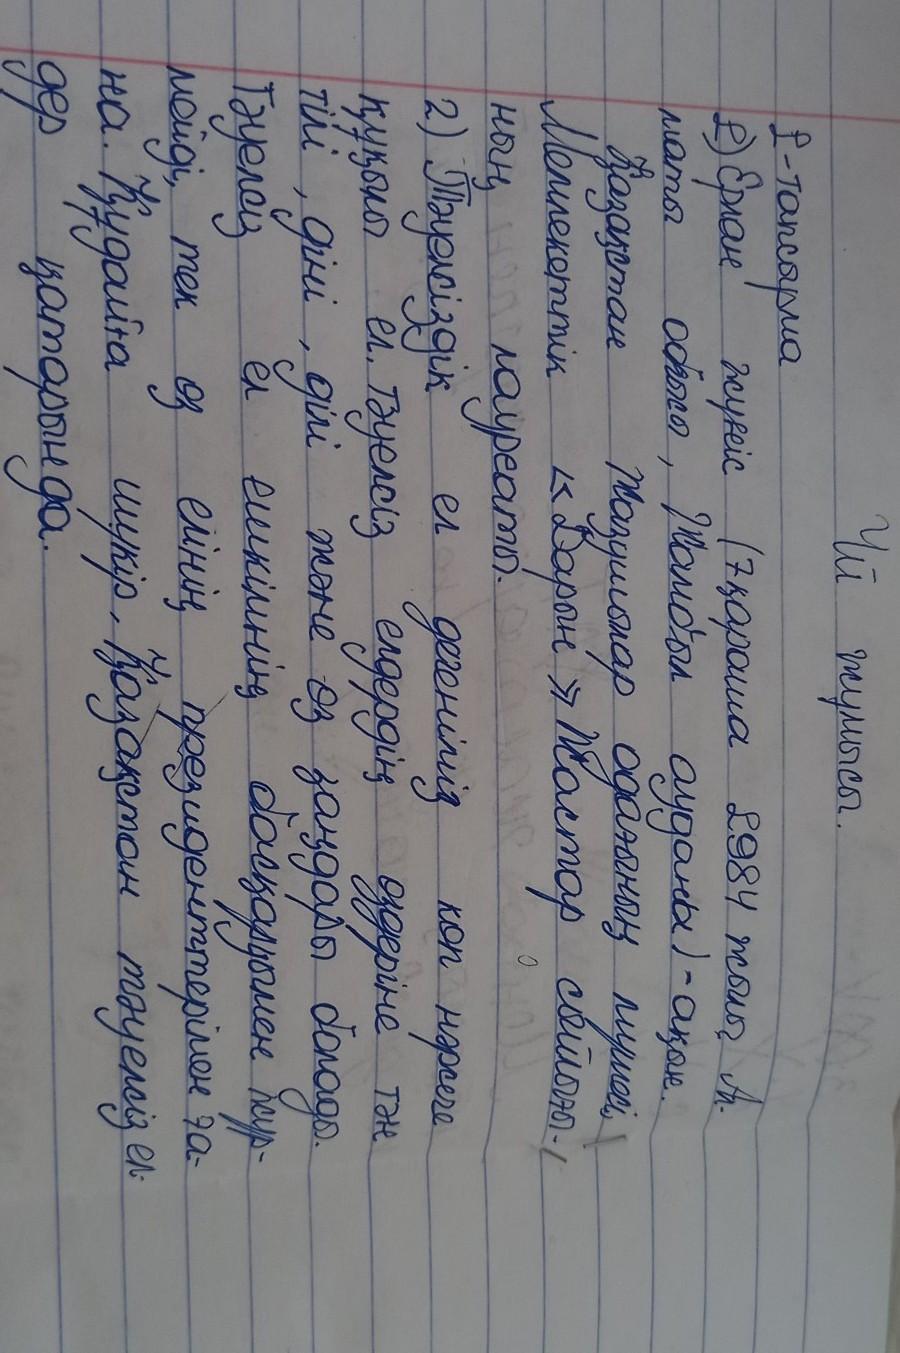 Үй жұмысы.
1-тапсырма
1) Ерлан Жүніс (7 қараша 1984 жылы, Ал-
маты облысы, Жамбыл ауданы) - ақын.
Қазақстан Жазушылар одағының мүшесі,
Мемлекеттік «Дарын» Жастар сыйлығы-
ның лауреаты.
2) Тәуелсіздік ел дегеніміз көп нәрсеге
құқылы ел. Тәуелсіз елдердің өздеріне тән
тілі, діні, ділі және өз заңдары болады.
Тәуелсіз ел ешкімнің басқаруымен жүр-
мейді, тек өз елінің президенттерімен ға-
на. Құдайға шүкір, Қазақстан тәуелсіз ел-
дер қатарында.